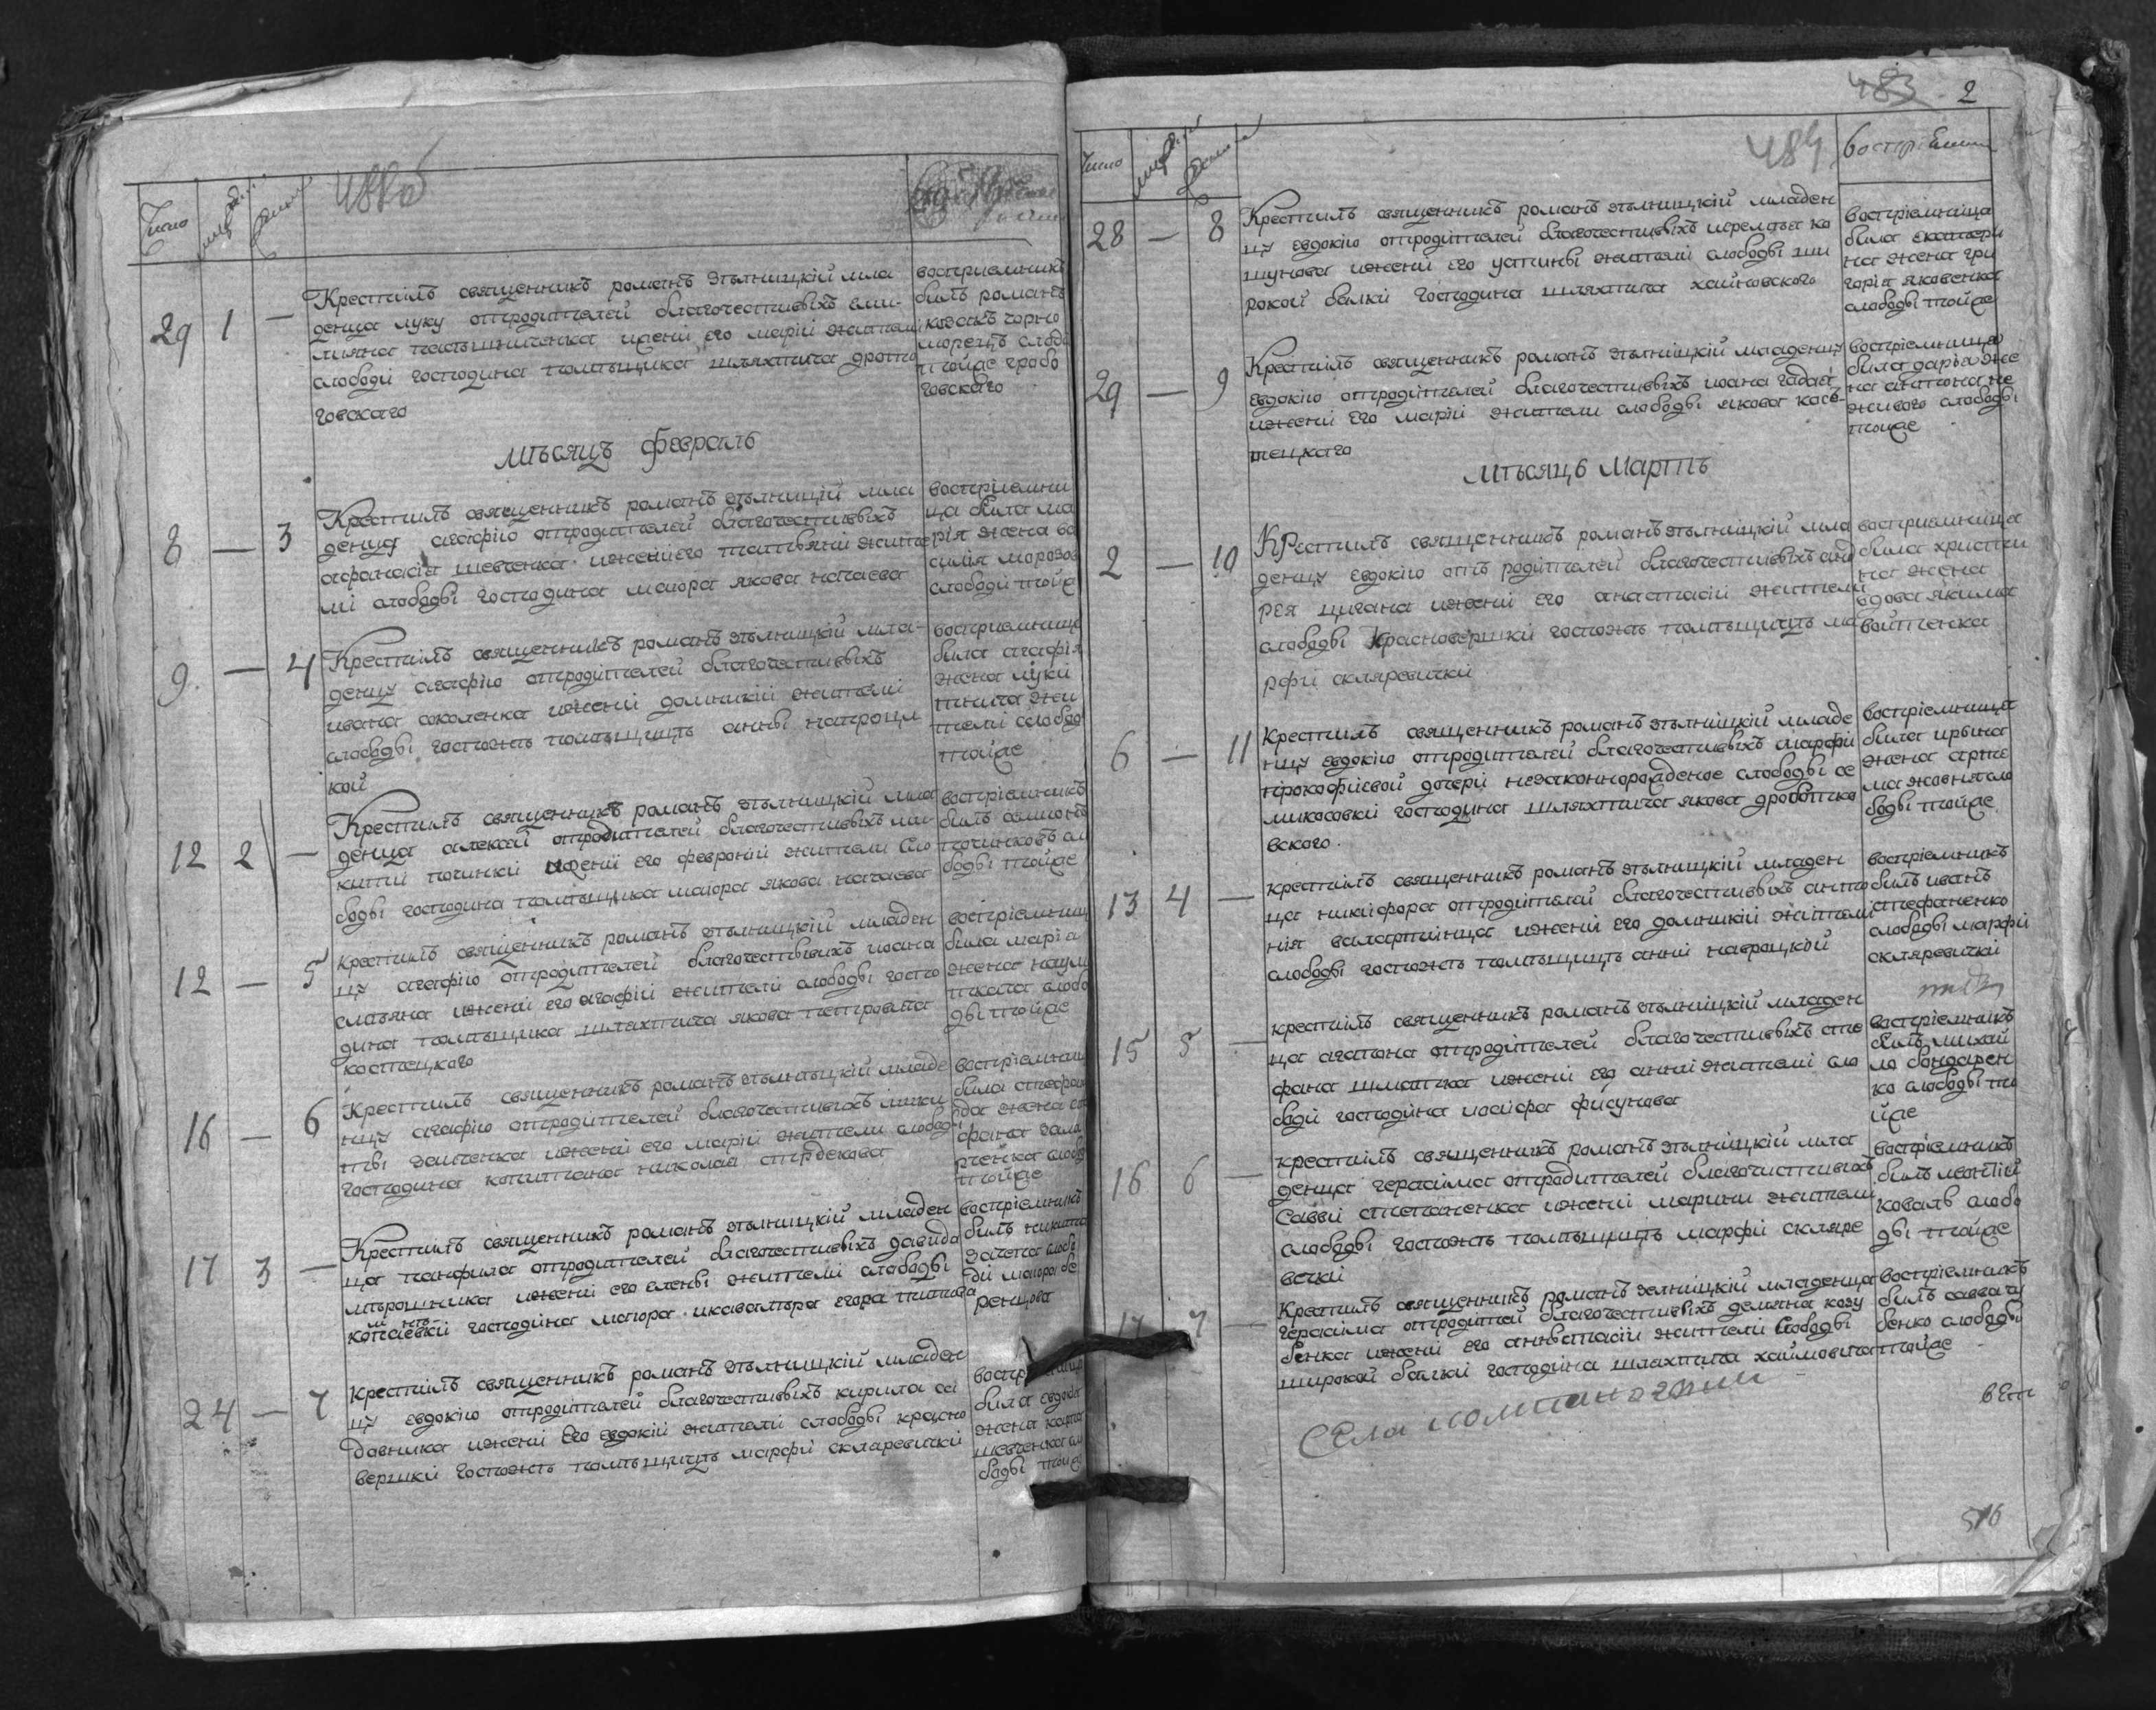 Число
29 1 —
Крестилъ священникъ романъ зѣлницкій мла
денца луку отродителей благочестивыхъ еми-
лияна ижени его маріи жители
слободи господина помѣщика шляхтича дробо
товского
восприемникъ
билъ романъ
козакъ чорно
морецъ слобо
тойже дробо
товского
мѣсяцъ февраль
8 — 3
Крестилъ священникъ романъ зѣлницкій мла
денцу агафію отродителей благочестивыхъ
афанасія шевченка иженииего татьяни жите
лі слободы господина маиора якова нечаева
восприемни
ца била ма
рія жена ва
силія морозов
слободи тойже
9 — 4
Крестилъ священникъ романъ зѣлницкій мла-
денцу агафію отродителей благочестивыхъ
ивана соколенка иженіи домникіи жителі
слободы госпожъ помѣщицъ анны навроцк
кой
восприемница
била агафія
жена луки
жи
телі слобод
тойже
12 2 —
Крестилъ священникъ романъ зѣлницкій мла
денца алексей отродителей благочестивыхъ ми-
китіи починки иженіи его февроніи жители сло
боды господина помѣщика маиора якова нечаева
воспріемникъ
билъ
починковъ сл
бодѣ тойже
12 — 5
Крестилъ священникъ романъ зѣлницкій младен
цу агафію отродителей благочестивыхъ иоана
емѣяна иженіи его агафіи жители слободы госпо
дина помѣщика шляхтича якова петровича
костецкого
воспріемниц
била маріа
жена наум
ткача слобо
ды тойже
16 — 6
Крестилъ священникъ романъ зѣлницкій младе
нцу агафію отродителей благочестивыхъ мики
ты заиченка иженіи его маріи жители слободы
господина капитана николая
воспріемниц
била стефани
да жена
фана
рченка слобо
тойже
17 3 —
Крестилъ священникъ романъ зѣлницкій младен
ца панфила отродителей благочестивыхъ давида
мѣрошника иженіи его елены жителі слободы
господина маиора икавалѣра егора
воспріемникъ
билъ никита
слобо
ди маиора бе
ренцова
24 — 7
Крестилъ священникъ романъ зѣлницкій младен
цу евдокію отродителей благочестивыхъ кирила са
довника иженіи его евдокіи жители слободы красно
вершки госпожъ помѣщицъ марфи скларевички
била евдокія
жена карпа
шевченка сло
боды тойже
483 2
484
Число
воспріемни
28 — 8
Крестилъ священникъ романъ зѣлницкій младен
цу евдокію отродителей благочестивыхъ иеремѣя ко
шунова иженіи его устины жителі слободы ши
рокой балки господина шляхтича хаиновского
воспріемница
била екатери
на жена гри
горія яковенка
слободы тойже
29 — 9
Крестилъ священникъ романъ зѣлницкій младенцу
евдокію отродителей благочестивыхъ иоана гадая
иженіи его маріи жители слободы якова кос-
тецкаго
воспріемница
била дарья же
на антона не
живого слободы
тойже
мѣсяцъ мартъ
2 — 10
Крестилъ священникъ романъ зѣлницкій мла
денцу евдокію отъ родителей благочестивыхъ анд
рея цигана иженіи его анастасіи жители
слободы красновершки госпожъ помѣщицъ ма
рфи скляревички
восприемница
била христи
на жена
вдова якима
войтенка
6 — 11
Крестилъ священникъ романъ зѣлницкій младе
нцу евдокію отродителей благочестивыхъ марфи
прокофіевой дочери незаконнорожденое слободы се
микосовки господина шляхтича якова дробитко
вского
воспріемница
била ирына
жена арте
ма жовнѣ сло
боды тойже
13 4 —
крестилъ священникъ романъ зѣлницкій младен
ца никифора отродителей благочестивыхъ анто
нія валахтинца иженіи его домникіи жители
слободы госпожъ помѣщицъ анни навроцкой
воспріемникъ
билъ иванъ
стефаненко
слободы марфи
скляревички
15 5 —
крестилъ священникъ романъ зѣлницкій младен
ца агапона отродителей благочестивыхъ сте
фана шматка иженіи его анни жителі сло
боди господина маиора фисунова
воспріемникъ
билъ михай
ло бондарен
ко слободы то
йже
16 6 —
крестилъ священникъ романъ зѣлницкій мла
денца герасима отродителей благочистивихъ
саввы степаненка иженіи марини жители
слободы госпожъ помѣщицъ марфи скляре
вечки
воспріемникъ
билъ леонтій
коваль слобо
ды тойже
17 7 —
Крестилъ священникъ романъ зелницкій младенца
герасима отродителей благочестивыхъ демяна козу
бенка иженіи его анастасіи жителі слободы
широкой балки господина шляхтича хаимовича
воспріемникъ
билъ савва чу
бенко слободы
тойже
Села
516